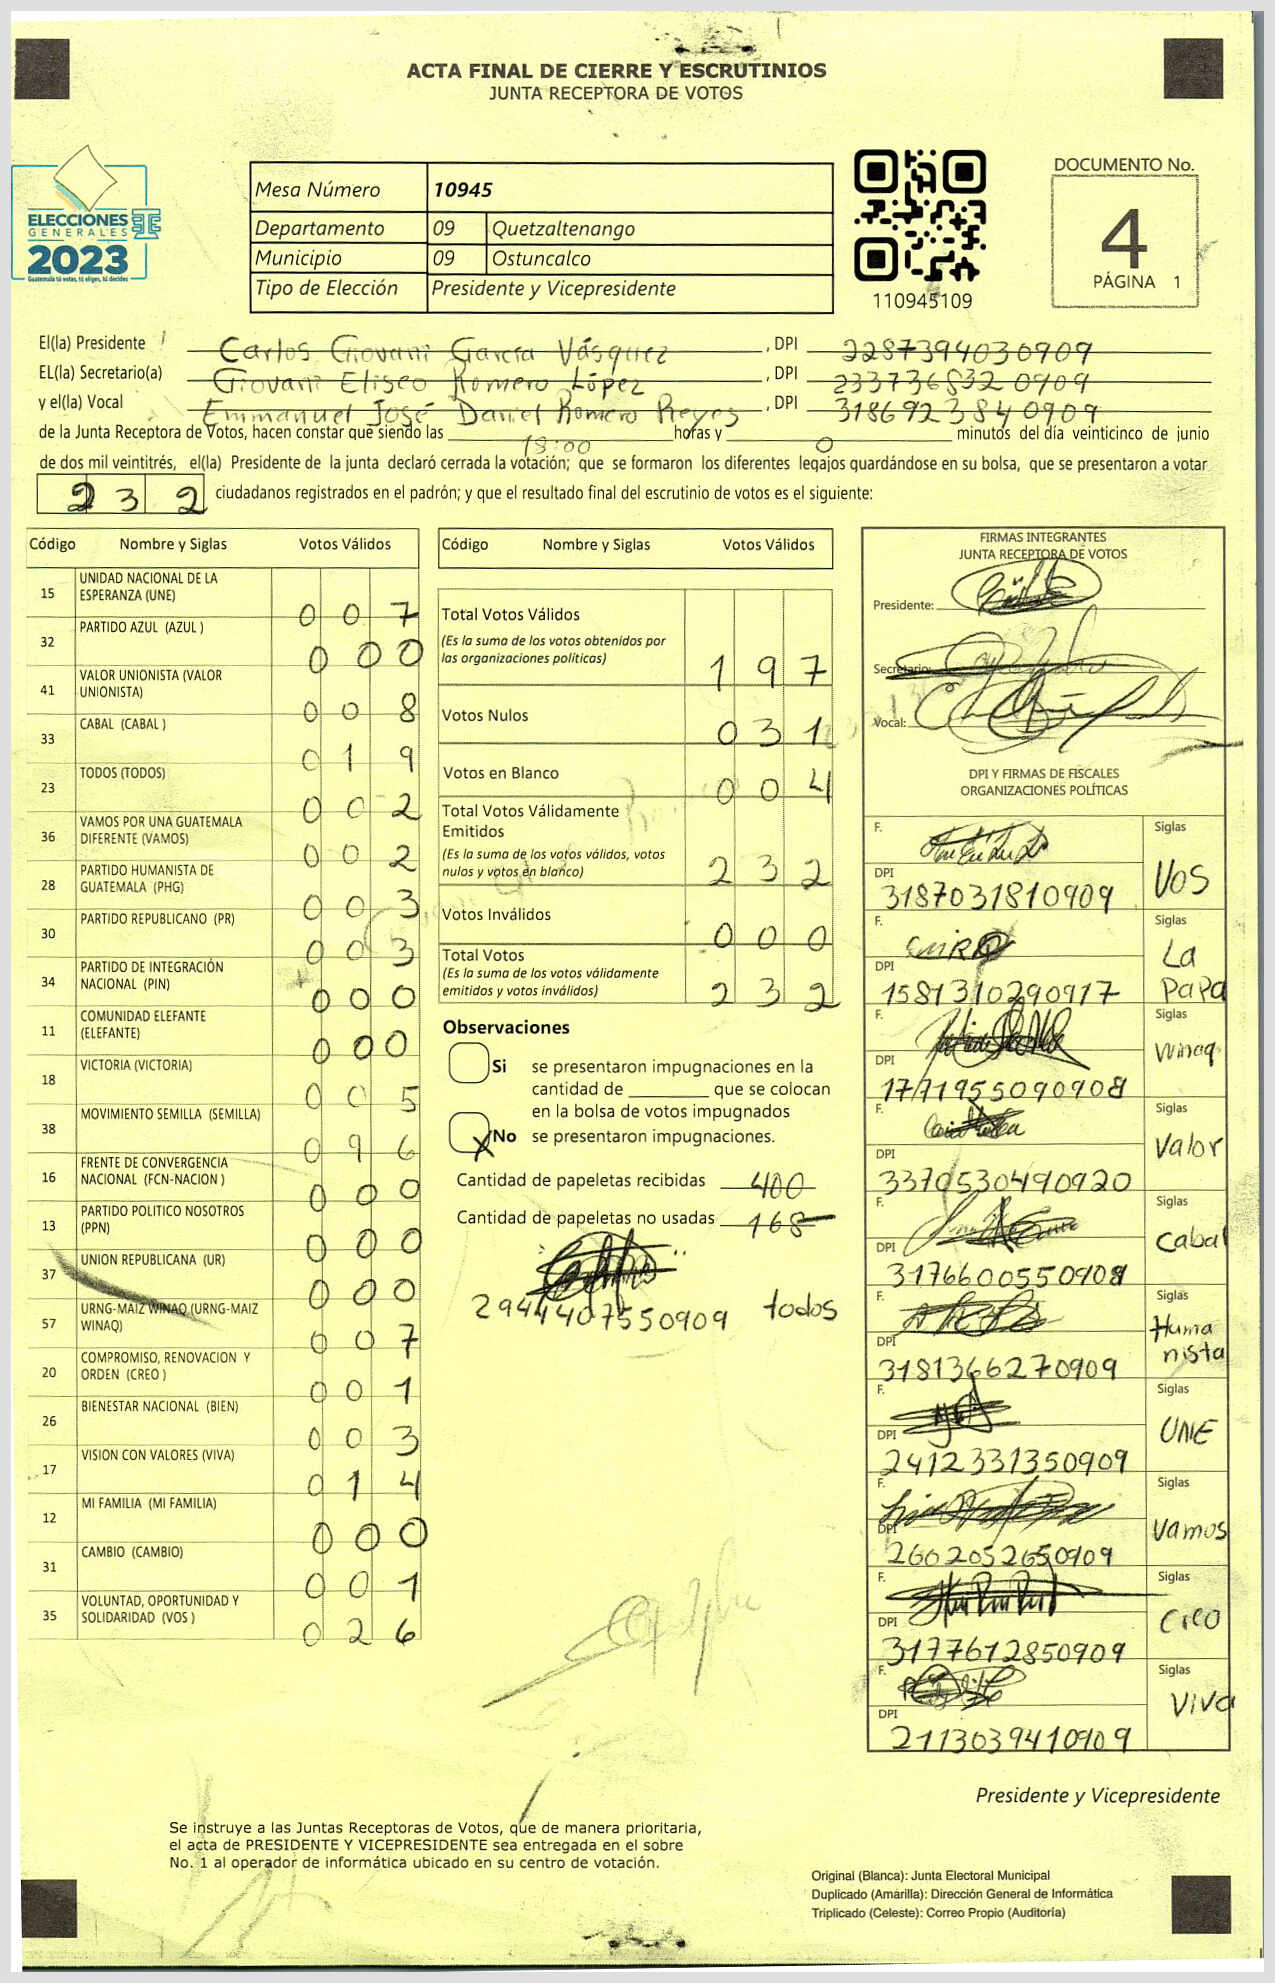 ACTA FINAL DE CIERRE Y ESCRUTINIOS
JUNTA RECEPTORA DE VOTOS
ELECCIONES
GENERALES
2023
Guatemala tú votas, tú eliges, tú decides
Mesa Número 10945
Departamento 09 Quetzaltenango
Municipio 09 Ostuncalco
Tipo de Elección Presidente y Vicepresidente
110945109
DOCUMENTO No.
4
PÁGINA 1
El(la) Presidente Carlos Giovani García Vásquez , DPI 2287394030909
EL(la) Secretario(a) Giovani Eliseo Romero López , DPI 2337368320909
y el(la) Vocal Emmanuel José Daniel Romero Reyes , DPI 3186923840909
de la Junta Receptora de Votos, hacen constar que siendo las 18:00 horas y 0 minutos del día veinticinco de junio
de dos mil veintitrés, el(la) Presidente de la junta declaró cerrada la votación; que se formaron los diferentes legajos guardándose en su bolsa, que se presentaron a votar
232 ciudadanos registrados en el padrón; y que el resultado final del escrutinio de votos es el siguiente:
Código Nombre y Siglas Votos Válidos
15 UNIDAD NACIONAL DE LA ESPERANZA (UNE) 007
32 PARTIDO AZUL (AZUL ) 000
41 VALOR UNIONISTA (VALOR UNIONISTA) 008
33 CABAL (CABAL ) 019
23 TODOS (TODOS) 002
36 VAMOS POR UNA GUATEMALA DIFERENTE (VAMOS) 002
28 PARTIDO HUMANISTA DE GUATEMALA (PHG) 003
30 PARTIDO REPUBLICANO (PR) 003
34 PARTIDO DE INTEGRACIÓN NACIONAL (PIN) 000
11 COMUNIDAD ELEFANTE (ELEFANTE) 000
18 VICTORIA (VICTORIA) 005
38 MOVIMIENTO SEMILLA (SEMILLA) 096
16 FRENTE DE CONVERGENCIA NACIONAL (FCN-NACION ) 000
13 PARTIDO POLITICO NOSOTROS (PPN) 000
37 UNION REPUBLICANA (UR) 000
57 URNG-MAIZ WINAQ (URNG-MAIZ WINAQ) 007
20 COMPROMISO, RENOVACION Y ORDEN (CREO ) 001
26 BIENESTAR NACIONAL (BIEN) 003
17 VISION CON VALORES (VIVA) 014
12 MI FAMILIA (MI FAMILIA) 000
31 CAMBIO (CAMBIO) 001
35 VOLUNTAD, OPORTUNIDAD Y SOLIDARIDAD (VOS ) 026
Código Nombre y Siglas Votos Válidos
Total Votos Válidos
(Es la suma de los votos obtenidos por
las organizaciones políticas) 197
Votos Nulos 031
Votos en Blanco 004
Total Votos Válidamente
Emitidos
(Es la suma de los votos válidos, votos
nulos y votos en blanco) 232
Votos Inválidos 000
Total Votos
(Es la suma de los votos válidamente
emitidos y votos inválidos) 232
Observaciones
Si se presentaron impugnaciones en la
cantidad de ________ que se colocan
en la bolsa de votos impugnados
X No se presentaron impugnaciones.
Cantidad de papeletas recibidas 400
Cantidad de papeletas no usadas 168
2944407550909 todos
FIRMAS INTEGRANTES
JUNTA RECEPTORA DE VOTOS
Presidente:
Secretario:
Vocal:
DPI Y FIRMAS DE FISCALES
ORGANIZACIONES POLÍTICAS
F. Siglas
DPI 3187031810909 VOS
F. Siglas
DPI 1581310290917 La PaPa
F. Siglas
DPI 1771955090908 Winaq
F. Siglas
DPI 3370530490920 Valor
F. Siglas
DPI 3176600550909 Cabal
F. Siglas
DPI 3181366270909 Humanista
F. Siglas
DPI 2412331350909 UNE
F. Siglas
DPI 2602052650909 Vamos
F. Siglas
DPI 3177612850909 Creo
F. Siglas
DPI 2113039410909 Viva
Presidente y Vicepresidente
Se instruye a las Juntas Receptoras de Votos, que de manera prioritaria,
el acta de PRESIDENTE Y VICEPRESIDENTE sea entregada en el sobre
No. 1 al operador de informática ubicado en su centro de votación.
Original (Blanca): Junta Electoral Municipal
Duplicado (Amarilla): Dirección General de Informática
Triplicado (Celeste): Correo Propio (Auditoría)